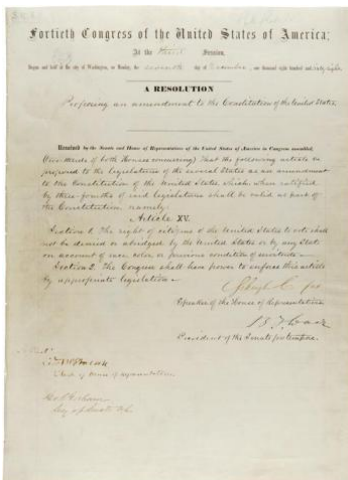 Fortieth Congress of the United States of America;
At the third Session,
Begun and held at the city of Washington, on Monday, the seventh day of December, one thousand eight hundred and sixty-eight.
A RESOLUTION
Proposing an amendment to the Constitution of the United States.
Resolved by the Senate and House of Representatives of the United States of America in Congress assembled,
(two-thirds of both Houses concurring) That the following article be
proposed to the legislatures of the several States as an amendment
to the Constitution of the United States which, when ratified
by three-fourths of said legislatures shall be valid as part of
the Constitution, namely:
Article XV.
Section 1. The right of citizens of the United States to vote shall
not be denied or abridged by the United States or by any State
on account of race, color, or previous condition of servitude—
Section 2. The Congress shall have power to enforce this article
by appropriate legislation—
Speaker of the House of Representatives
B. F. Wade
President of the Senate pro tempore.
Attest:
Clerk of House of Representatives